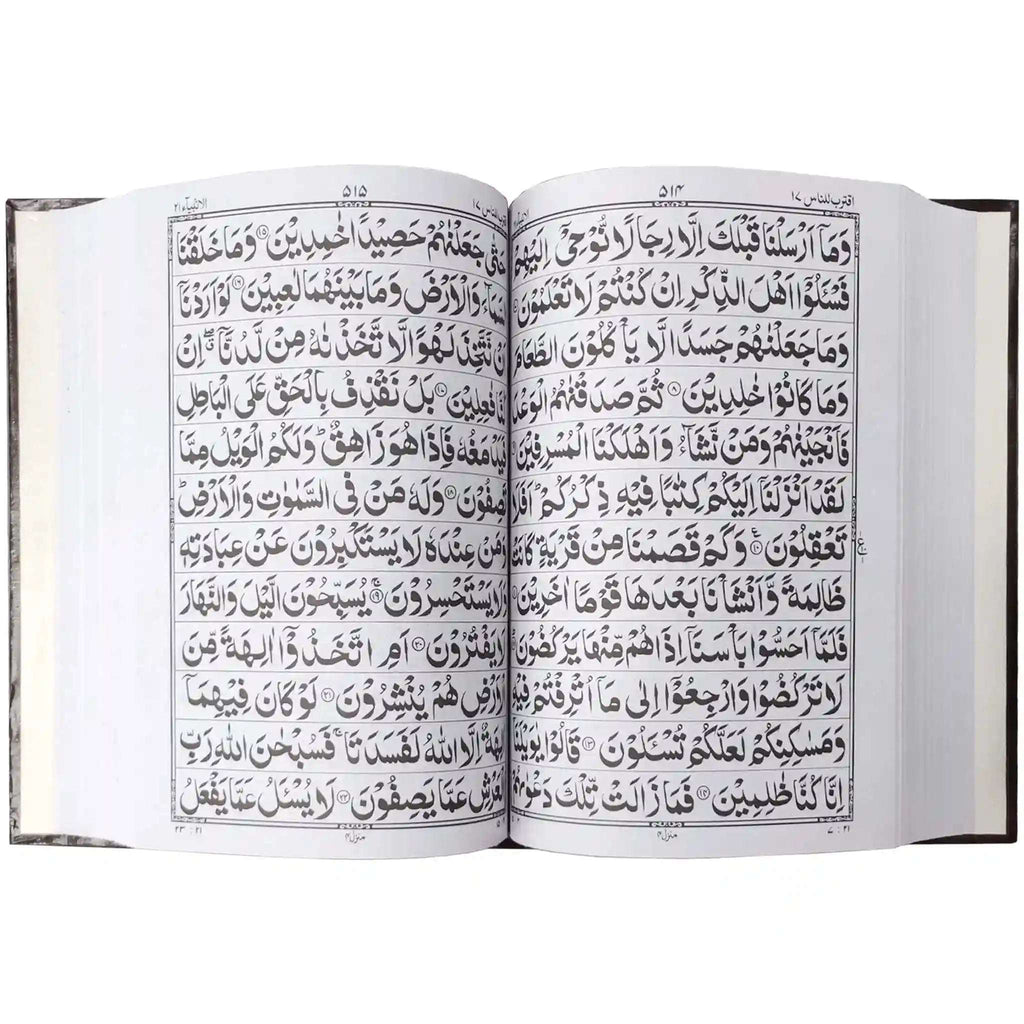 اقترب للناس ۱۷
۵۱۴
وَمَاۤ اَرْسَلْنَا قَبْلَكَ اِلَّا رِجَالًا نُّوْحِیْۤ اِلَیْهِمْ
فَسْـَٔلُوْۤا اَهْلَ الذِّكْرِ اِنْ كُنْتُمْ لَا تَعْلَمُوْنَ
وَمَا جَعَلْنٰهُمْ جَسَدًا لَّا یَاْكُلُوْنَ الطَّعَامَ
وَمَا كَانُوْا خٰلِدِیْنَ ۸ ثُمَّ صَدَقْنٰهُمُ الْوَعْدَ
فَاَنْجَیْنٰهُمْ وَمَنْ نَّشَآءُ وَاَهْلَكْنَا الْمُسْرِفِیْنَ
لَقَدْ اَنْزَلْنَاۤ اِلَیْكُمْ كِتٰبًا فِیْهِ ذِكْرُكُمْ ؕ اَفَلَا
تَعْقِلُوْنَ ۱۰ وَكَمْ قَصَمْنَا مِنْ قَرْیَةٍ كَانَتْ
ظَالِمَةً وَّاَنْشَاْنَا بَعْدَهَا قَوْمًا اٰخَرِیْنَ
فَلَمَّاۤ اَحَسُّوْا بَاْسَنَاۤ اِذَا هُمْ مِّنْهَا یَرْكُضُوْنَ
لَا تَرْكُضُوْا وَارْجِعُوْۤا اِلٰی مَاۤ اُتْرِفْتُمْ فِیْهِ
وَمَسٰكِنِكُمْ لَعَلَّكُمْ تُسْـَٔلُوْنَ ۱۳ قَالُوْا یٰوَیْلَنَاۤ
اِنَّا كُنَّا ظٰلِمِیْنَ ۱۴ فَمَا زَالَتْ تِّلْكَ دَعْوٰىهُمْ
۷ : ۲۱
منزل ۴
اقترب للناس ۱۷
۵۱۵
الانبیآء ۲۱
حَتّٰی جَعَلْنٰهُمْ حَصِیْدًا خٰمِدِیْنَ ۱۵ وَمَا خَلَقْنَا
السَّمَآءَ وَالْاَرْضَ وَمَا بَیْنَهُمَا لٰعِبِیْنَ ۱۶ لَوْ اَرَدْنَاۤ
اَنْ نَّتَّخِذَ لَهْوًا لَّاتَّخَذْنٰهُ مِنْ لَّدُنَّاۤ اِنْ
كُنَّا فٰعِلِیْنَ ۱۷ بَلْ نَقْذِفُ بِالْحَقِّ عَلَی الْبَاطِلِ
فَیَدْمَغُهٗ فَاِذَا هُوَ زَاهِقٌ ؕ وَلَكُمُ الْوَیْلُ مِمَّا
تَصِفُوْنَ ۱۸ وَلَهٗ مَنْ فِی السَّمٰوٰتِ وَالْاَرْضِ ؕ
وَمَنْ عِنْدَهٗ لَا یَسْتَكْبِرُوْنَ عَنْ عِبَادَتِهٖ
وَلَا یَسْتَحْسِرُوْنَ ۱۹ یُسَبِّحُوْنَ الَّیْلَ وَالنَّهَارَ
لَا یَفْتُرُوْنَ ۲۰ اَمِ اتَّخَذُوْۤا اٰلِهَةً مِّنَ
الْاَرْضِ هُمْ یُنْشِرُوْنَ ۲۱ لَوْ كَانَ فِیْهِمَاۤ
اٰلِهَةٌ اِلَّا اللّٰهُ لَفَسَدَتَا ۚ فَسُبْحٰنَ اللّٰهِ رَبِّ
الْعَرْشِ عَمَّا یَصِفُوْنَ ۲۲ لَا یُسْـَٔلُ عَمَّا یَفْعَلُ
منزل ۴
۲۳ : ۲۱